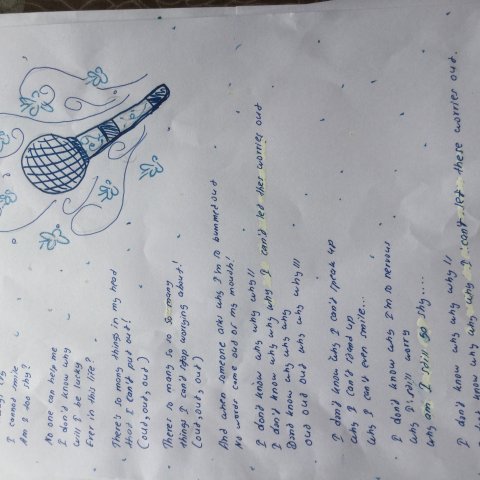 cry
I cannot smile
Am I too shy?
No one can help me
I don't know why
will I be lucky
Ever in this life?
There's so many things in my head
that I can't put out!
(out, out, out)
There's so many so so so many
things I can't stop worrying about!
(out, out, out)
And when someone asks why I'm so bummed out
No words come out of my mouth!
I don't know why why why!!
I don't know why why why I can't let ther worries out
Dont know why why why
out out out why why why!!!
I don't know why I can't speak up
why I can't stand up
why I can't even smile...
I don't know why I'm so nervous
why I still worry
why am I still so shy....
I don't know why why why!!
I don't know why why why I can't let these worries out.